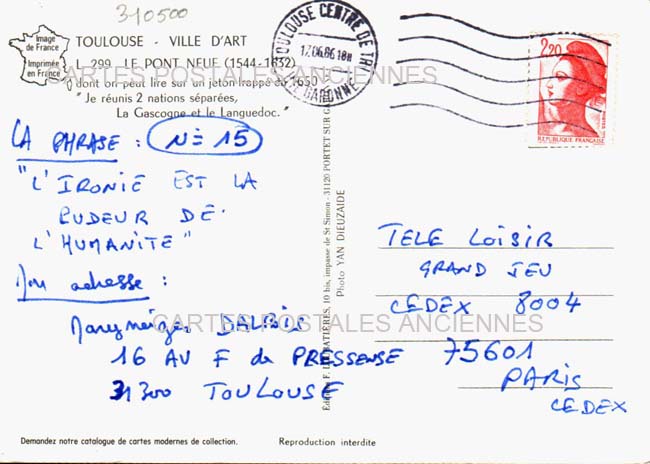 310500
Image
de France
Imprimée
en France
TOULOUSE - VILLE D'ART
L. 299 LE PONT NEUF (1544-1632)
dont on peut lire sur un jeton frappé
"Je réunis 2 nations séparées,
La Gascogne et le Languedoc."
CARTES POSTALES ANCIENNES
TOULOUSE CENTRE DE TRI
17.06.86 18H
GARONNE
2,20
REPUBLIQUE FRANÇAISE
LA PHRASE : N= 15
"L'IRONIE EST LA
PUDEUR DE
L'HUMANITE"
Mon adresse :
16 AV F de PRESSENSE
31300 TOULOUSE
10 bis, impasse de St Simon - 31120 PORTET SUR
Photo YAN DIEUZAIDE
TELE LOISIR
GRAND JEU
CEDEX 8004
75601
PARIS
CEDEX
CARTES POSTALES ANCIENNES
Demandez notre catalogue de cartes modernes de collection.
Reproduction interdite